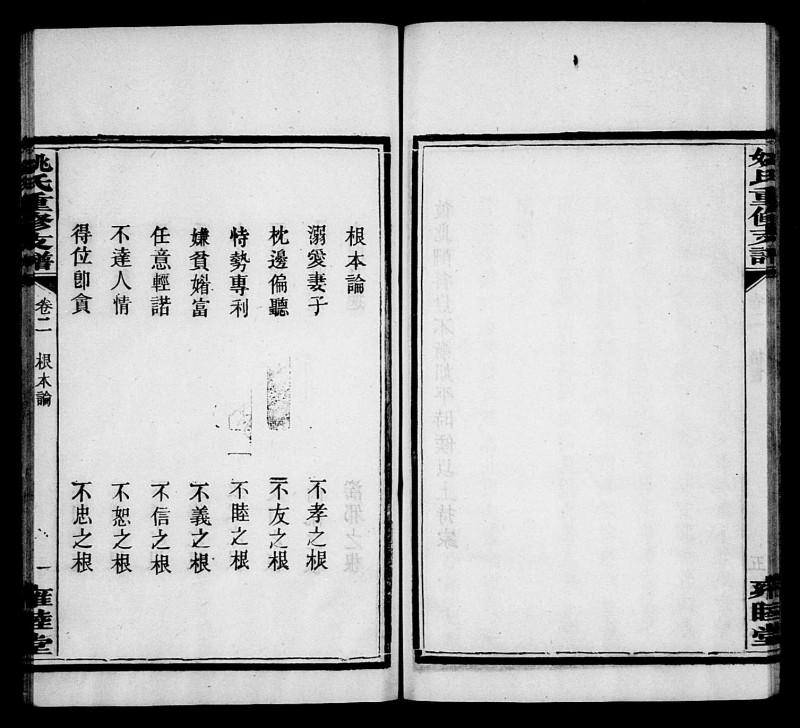 姚氏重修支譜
五
雍睦堂
根本論
溺愛妻子 不孝之根
枕邊偏聽 不友之根
恃勢專利 不睦之根
嫌貧媎富 不義之根
任意輕諾 不信之根
不達人情 不恕之根
得位卽貪 不忠之根
姚氏重修支譜
卷二
根本論
一
雍睦堂